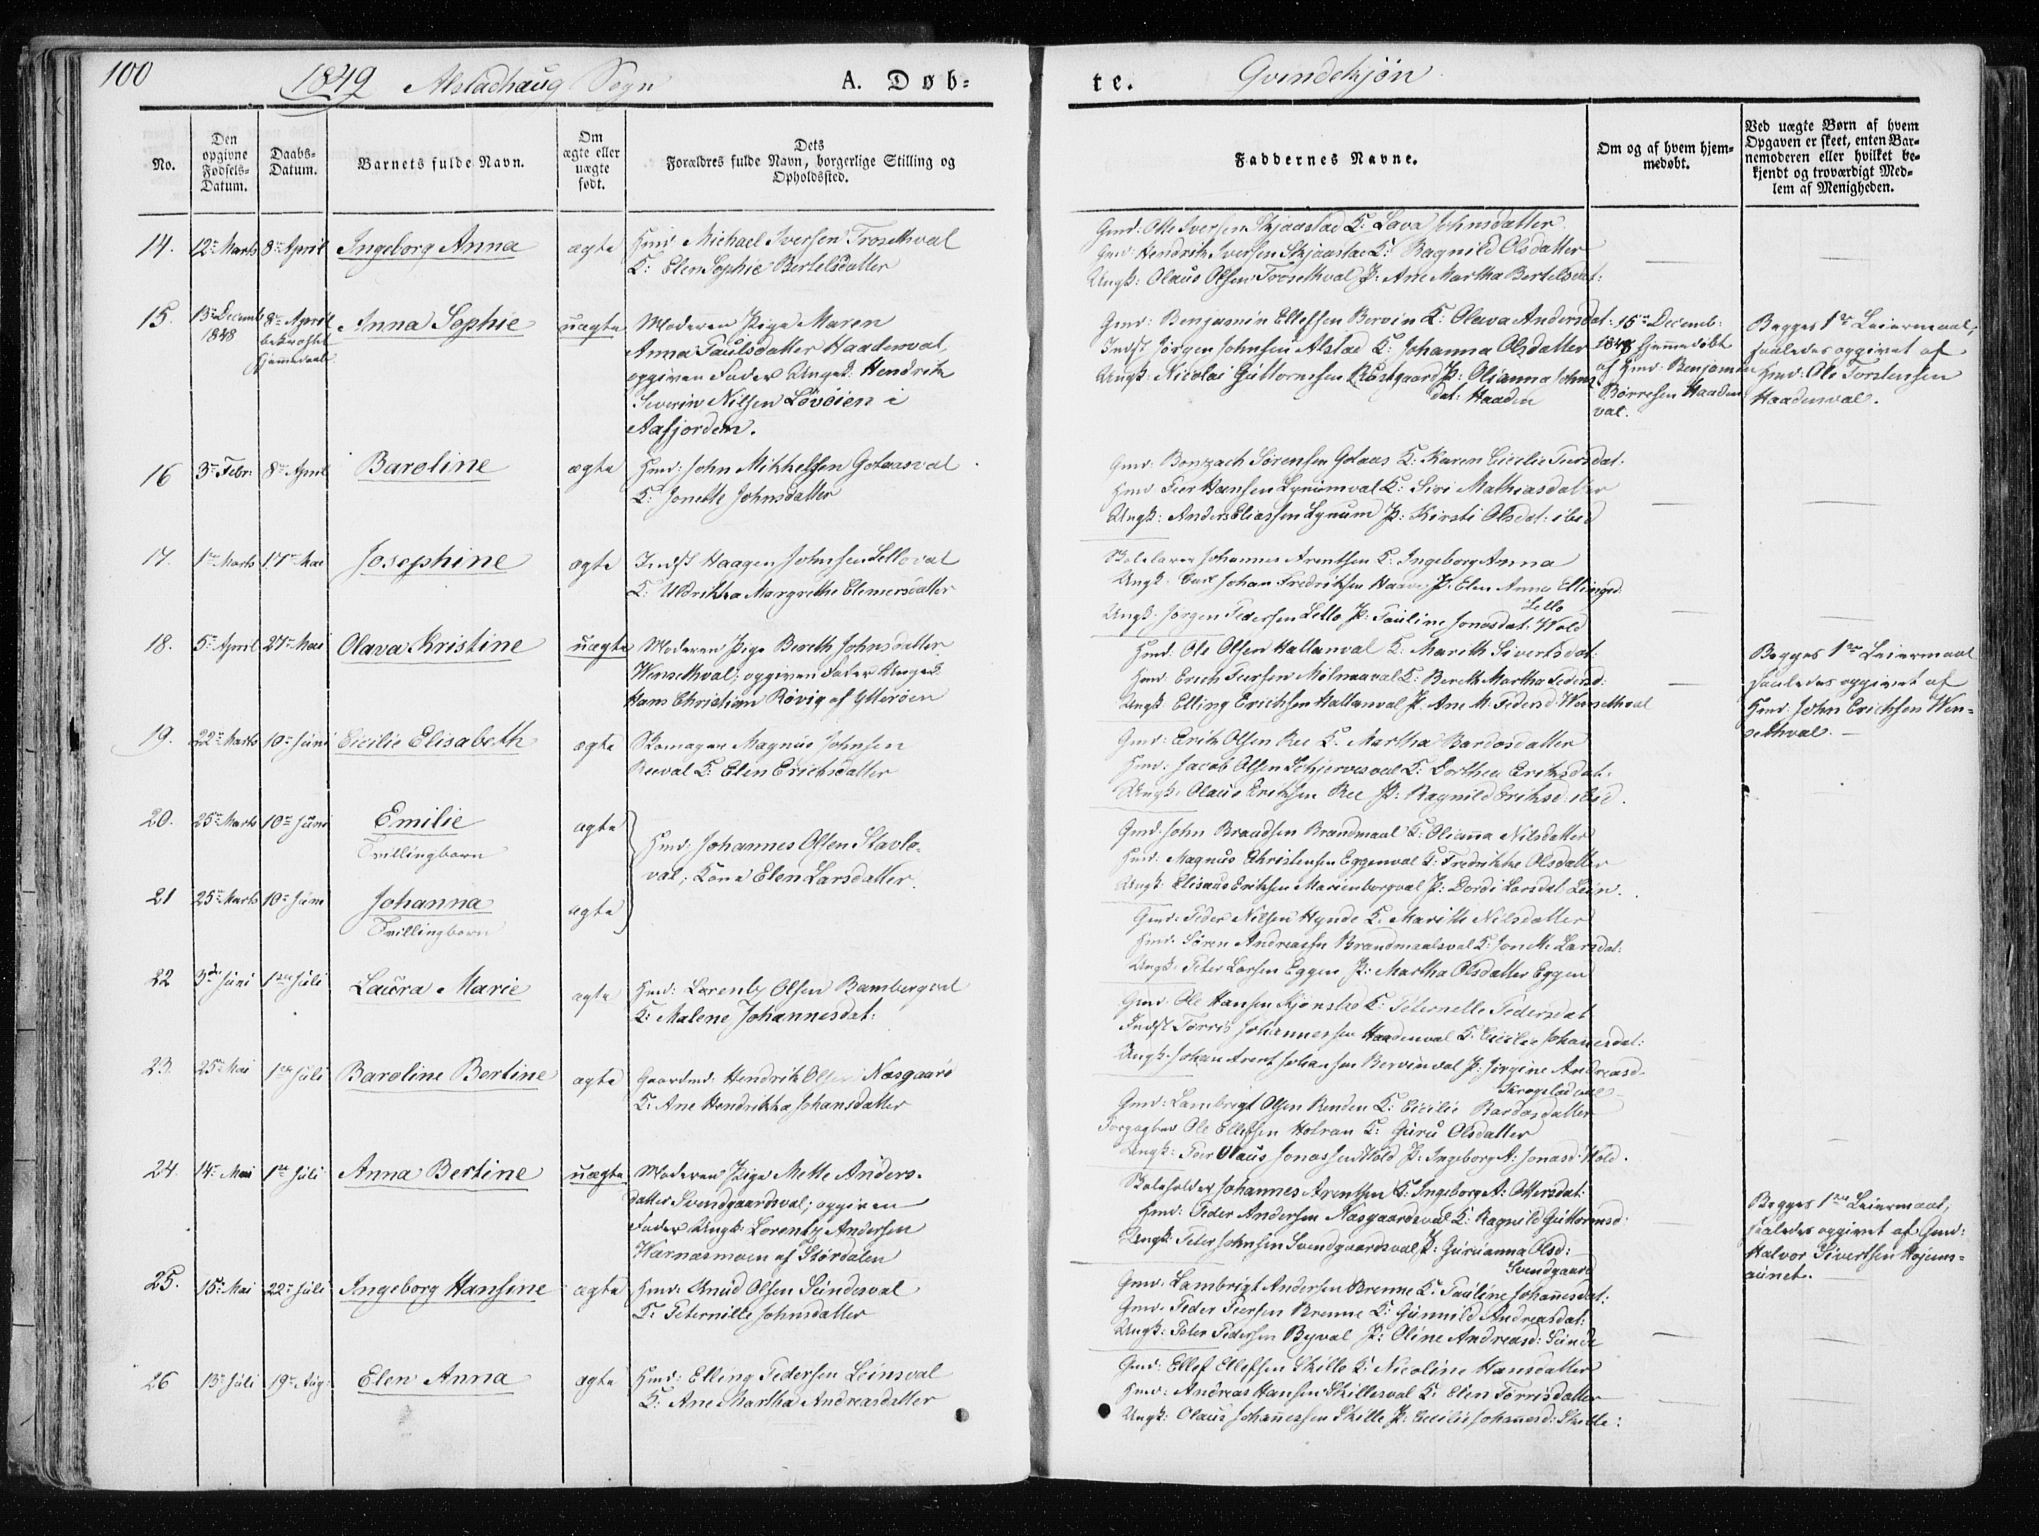 100
1849 Alstadhaug Sogn
A. Døb-
te.
Qvindekjøn
No.
Den opgivne Fødsels-Datum.
Daabs-Datum.
Barnets fulde Navn.
Om ægte eller uægte født.
Dets Forældres fulde Navn, borgerlige Stilling og Opholdssted.
Faddernes Navne.
Om og af hvem hjem-medøbt.
Ved uægte Børn af hvem Opgaven er skeet, enten Bar-nemoderen eller hvilket be-kjendt og troværdigt Med-lem af Menigheden.
14. 12te Marts 8de April Ingeborg Anna ægte Hmd: Michael Iversen Trosethval
K: Elen Sophie Bertelsdatter
Gmd: Otte Iversen Skjaastad K: Lava Johnsdatter
Gmd: Hendrik Iversen Skjaastad K: Ragnild Olsdatter
Ungk: Olaus Olsen Trosethval P: Ane Martha Bertelsdat:
15. 13de Decemb 1848 8de April bekræftet Hjemmedaab Anna Sophie uægte Moderen Pige Maren
Anna Paulsdatter Haadenval,
opgiven Fader Ungk: Hendrik
Severin Nilsen Løvøien i
Aafjorden.
Gmd: Benjamin Ellefsen Bervin K: Olava Andersdat:
Indst Jørgen Johnsen Alstad K: Johanna Olsdatter
Ungk: Nicolai Guttormsen Røstgaard P: Olianna Johns
dat: Haaden
15de Decemb:
1848 Hjemmedøbt
af Hmd: Benjamin
Børresen Haaden
val.
Begges 1ste Leiermaal,
saaledes opgivet af
Hmd: Ole Torstensen
Haadenval.
16 3de Febr: 8de April Baroline ægte Hmd: John Mikkelsen Gotaasval
K: Jonette Johnsdatter
Gmd: Bonzach Sørensen Gotaas K: Karen Cicilie Peersdat:
Hmd Peer Hansen Lynumval K: Siri Mathiasdatter
Ungk: Anders Eliassen Lynum P: Kirsti Olsdat: ibid
17. 1ste Marts 17de Mai Josephine ægte Indst Haagen Johnsen Lelloval
K: Uldrikka Margrethe Elemersdatter
Johannes Arentsen K: Ingeborg Anna
Ungk: Carl Johan Fredriksen Haave P: Elen Anna Ellingsd:
Lello
Ungk: Jørgen Pedersen Lello P: Pauline Jonasdat: Wold
18. 5te April 27de Mai Olava Kristine uægte Moderen Pige Bereth Johnsdatter
Wensethval; opgiven Fader Ungk:
Hans Christian Røvig af Ytterøen
Hmd: Ole Olsen Hallanval K: Marith Sivertsdat:
Hmd: Erich Peersen Mølnaaval K: Bereth Martha Pedersd:
Ungk: Elling Erichsen Hallanval P: Ane M: Pedersd: Wensethval
Begges 1ste Leiermaal
saaledes opgivet af
Hmd: John Erichsen Wen-
sethval.
19. 22de Marts 10de Juni Cicilie Elisabeth ægte Skomager Magnus Johnsen
Reeval K: Elen Erichsdatter
Gmd: Erik Olsen Ree K: Martha Bardosdatter
Hmd: Jacob Olsen K: Dorthea Eriksdat:
Ungk: Olaus Eriksen Ree P: Ragnild Eriksd: ibid.
20. 25de Marts 10de Juni Emilie
Tvillingbarn ægte
Hmd: Johannes Olsen Stavlo-
val; Kone Elen Larsdatter.
Gmd: John Braadsen Brandmaal K: Olianna Nilsdatter
Hmd: Magnus Christensen Eggenval K: Fredrikke Olsdatter
Ungk: Elisaus Eriksen Marienborgval P: Dordi Larsdat: Lein.
21 25de Marts 10de Juni Johanna
Tvillingbarn ægte
Gmd: Peder Nilsen Hynde K: Maritte Nilsdatter
Hmd: Søren Andreasen Brandmaalsval K: Jonette Larsdat:
Ungk: Peter Larsen Eggen P: Martha Olsdatter Eggen
22 3die Juni 1ste Juli Laura Marie ægte Hmd: Lorentz Olsen Rambergval
K: Malene Johannesdat:
Gmd: Ole Hansen Kjønstad K: Peternelle Pedersdat
Indst Torris Johannessen Haadenval K: Cicilie Johanesdat:
Ungk: Johan Arent Johansen Bervinval P: Jørgine Andreasd.
Skrogstadval
23. 25de Mai 1ste Juli Baroline Bertine ægte Gaardmd: Hendrik Olsen Næsgaard
K: Ane Hendrikka Johansdatter
Gmd: Lambrigt Olsen Renden K: Cicilie Bardosdatter
Forpagter Ole Ellefsen Holran K: Guru Olsdatter
Ungk: Peer Olaus Jonassen Wold P: Ingeborg A: Jonasd: Wold.
24. 14de Mai 1ste Juli Anna Bertine uægte Moderen Pige Mette Anders-
datter Svendgaardsval; opgiven
Fader Ungk: Lorentz Andersen
Warnæsmoen af Størdalen
Johannes Arentsen K: Ingeborg A: Ottersdat:
Hmd: Peder Andersen Næsgaardsval K: Ragnild Guttormsd:
Ungk: Peter Johnsen Svendgaardsval P: Gurianna Olsd:
Svendgaard
Begges 1ste Leiermaal,
saaledes opgivet af Gmd:
Halvor Sivertsen Mojems-
aunet.
25. 15de Mai 22de Juli Ingeborg Hansine ægte Hmd: Knud Olsen Sundesval
K: Peternille Johnsdatter
Gmd: Lambrigt Andersen Brenne K: Pauline Johannesdat:
Gmd: Peder Peersen Brenne K: Gunnild Andreasdat:
Ungk: Peter Pedersen Byval P: Oline Andreasd: Sunde
26 13de Juli 19de Aug: Elen Anna ægte Hmd: Elling Pedersen Leinsval
K: Ane Martha Andreasdatter
Gmd: Ellef Ellefsen Skille K: Nicoline Hansdatter
Hmd: Andreas Hansen Skillesval K: Elen Torrisdatter
Ungk: Olaus Johannessen Skille P: Cecilie Johannesd: Skille: